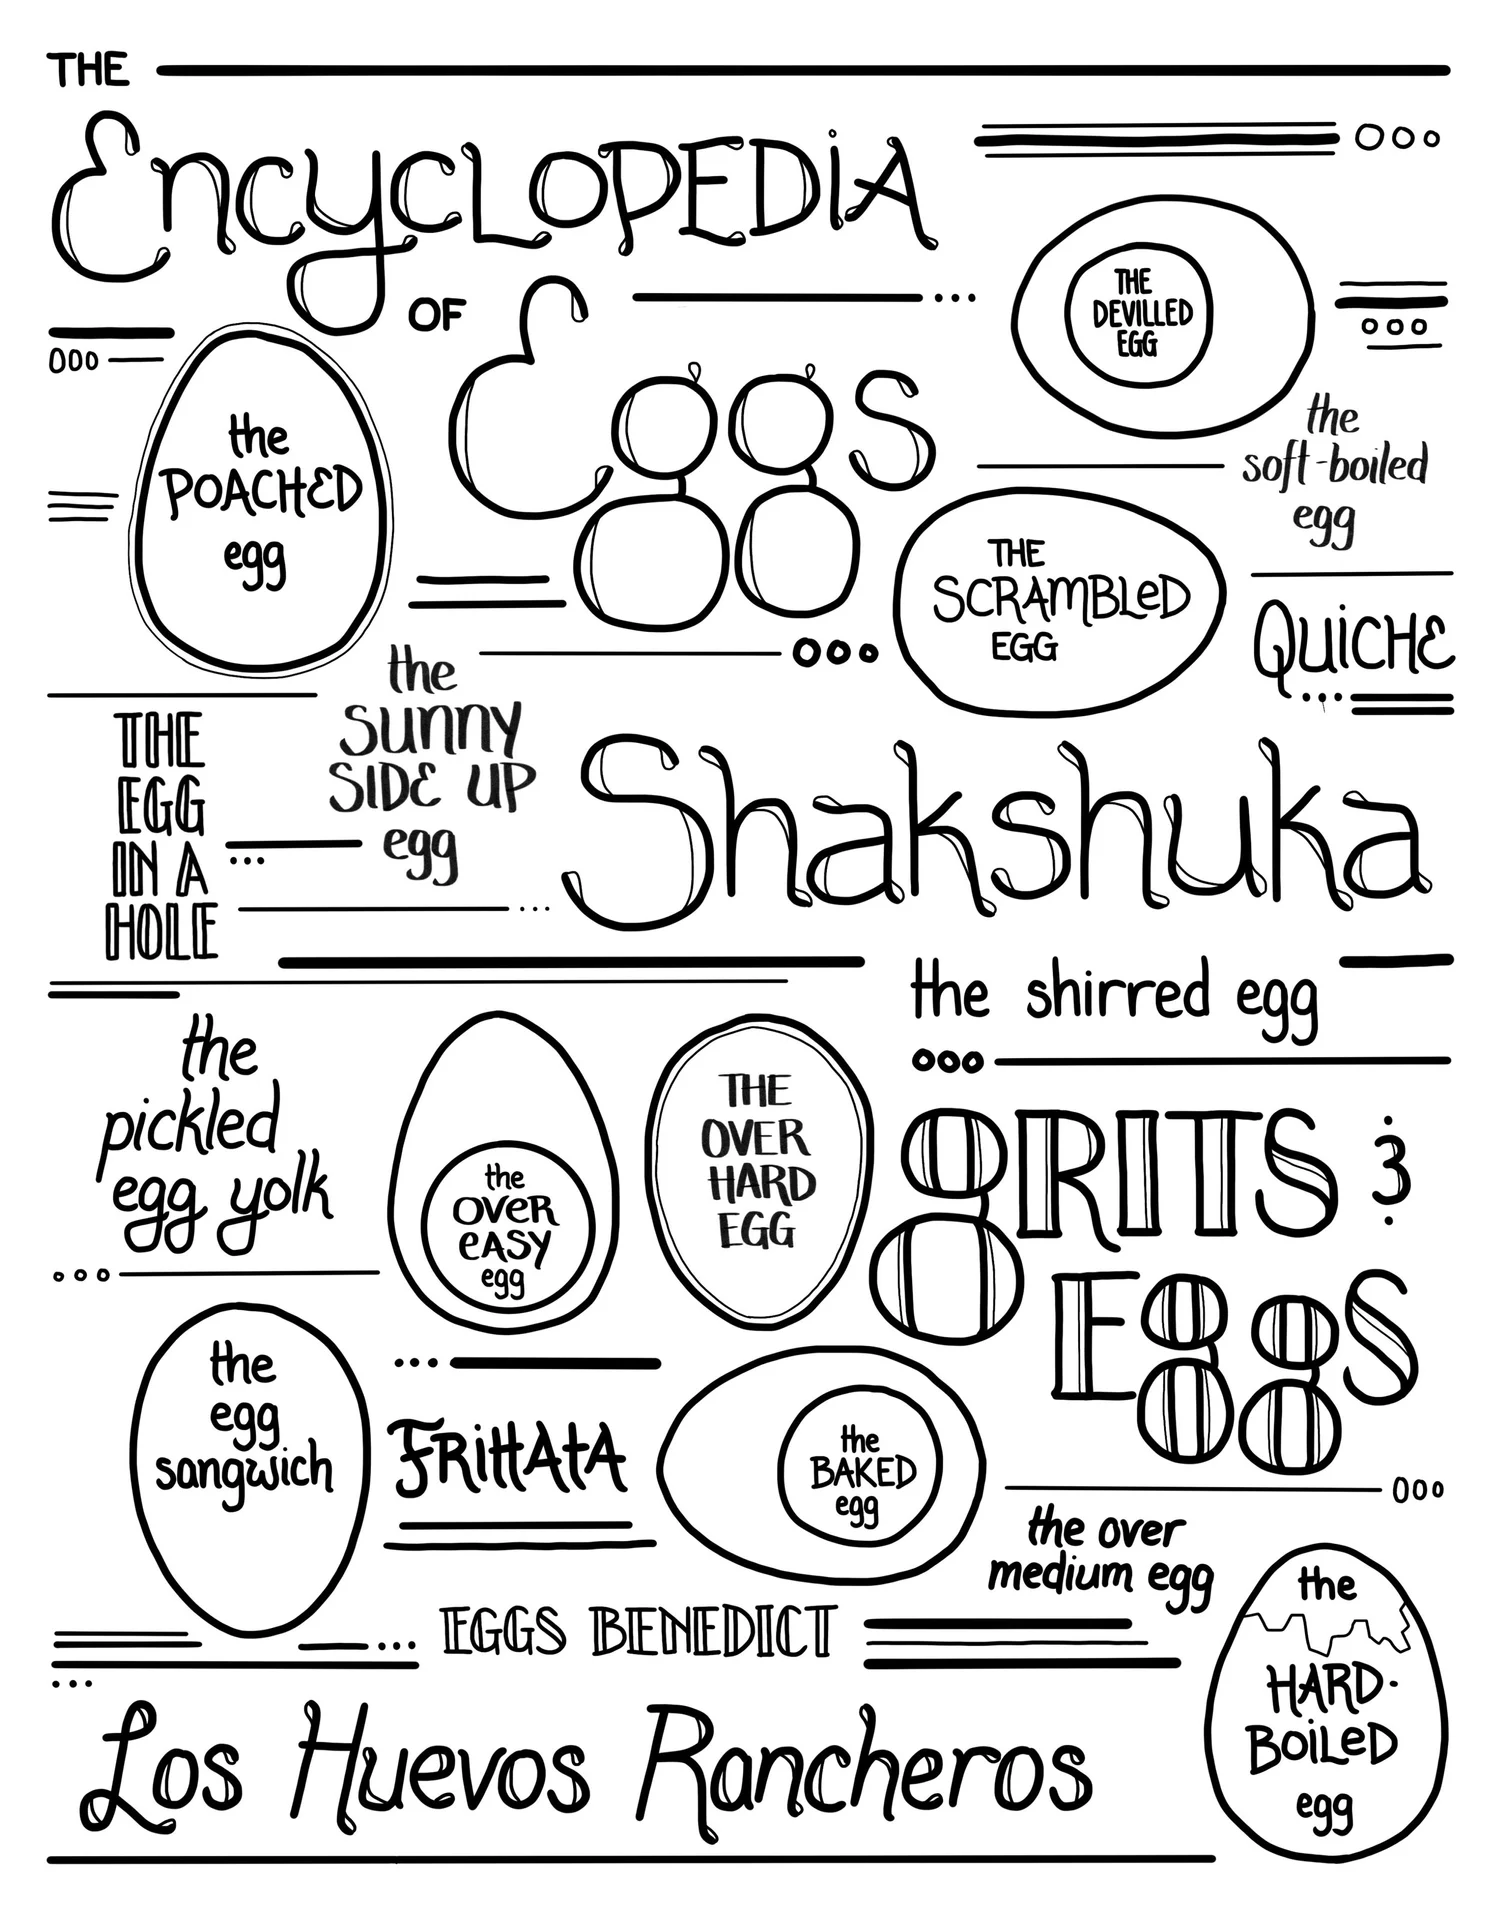 THE
EncycLOPEDiA
OF
Eggs
THE
DEVILLED
EGG
the
POACHED
egg
the
soft-boiled
egg
THE
SCRAMBLeD
EGG
QUiCHE
the
sunny
SIDE UP
egg
THE
EGG
IN A
HOLE
Shakshuka
the shirred egg
the
pickled
egg yolk
the
OVeR
eASY
egg
THE
OVER
HARD
EGG
gRITS &
EggS
the
egg
sangwich
FRittAtA
the
BAKED
egg
the over
medium egg
EGGS BENEDICT
the
HARD-
BOiLeD
egg
Los Huevos Rancheros